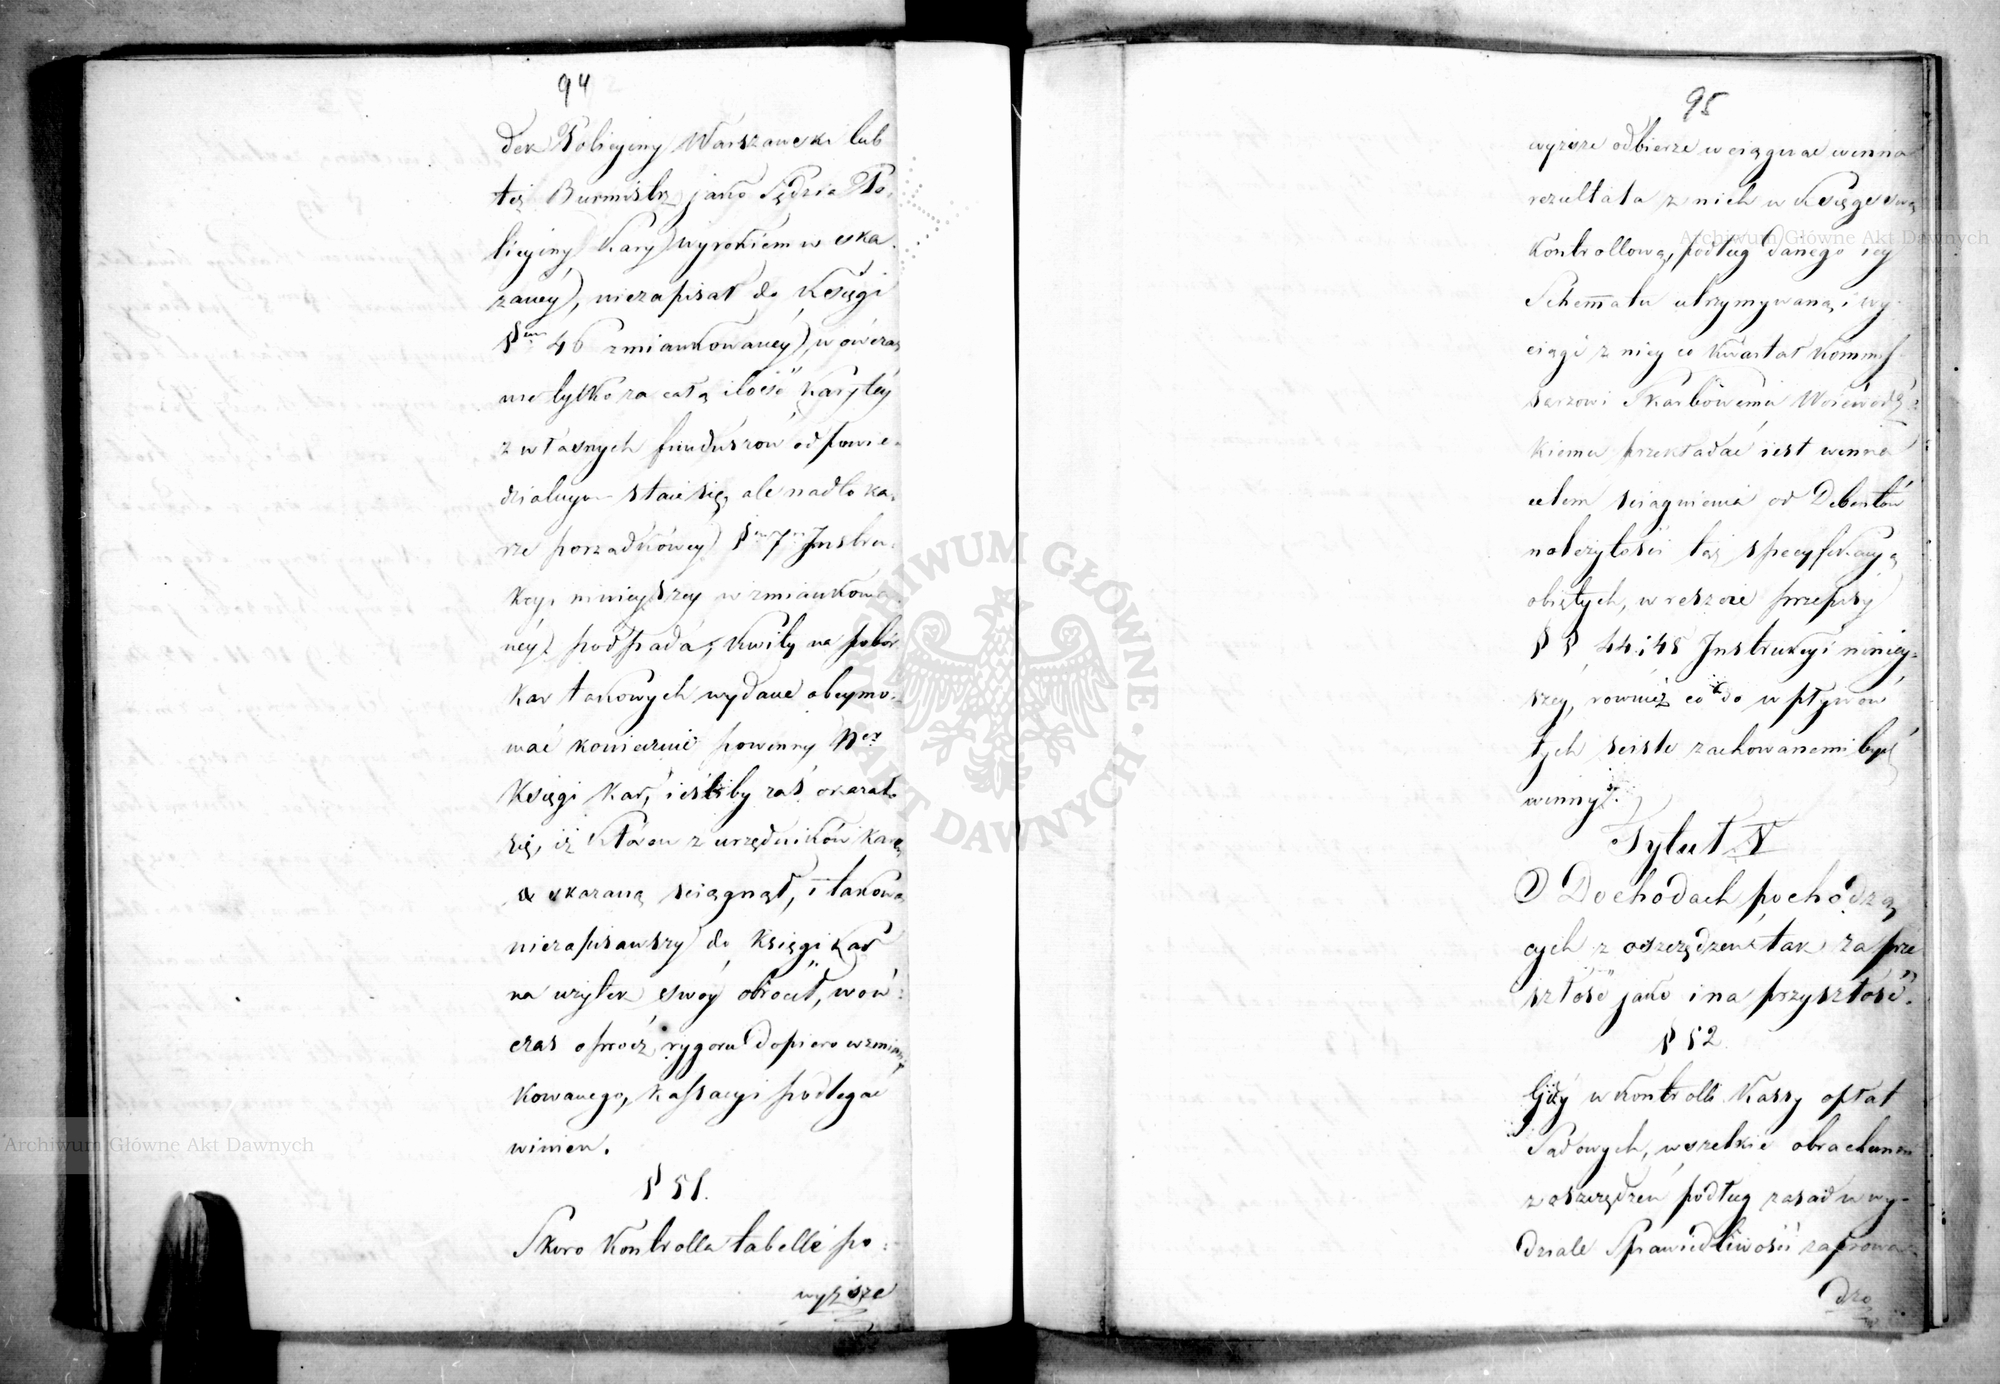 94
dek Policyiny Warszawski lub
też Burmistrz jako Sędzia Po,
licyiny Kary wyrokiem wska,
zaney, niezapisał do Księgi
§em 46 zmiankowaney, wówczas
nietylko za całą ilość Kary tey
z własnych funduszów odpowie,
dzialnym staie się, ale nadto ka,
rze porządkowey §em 7 Instru,
kcyi ninieyszey wzmiankowa,
ney podpada, Kwity na pobór
kar takowych wydane obeymo,
wać koniecznie powinny Ner
Księgi Kar, ieśliby zaś okazało
się, iż któren z urzędników karę
wskazaną sciągnął, i takową
niezapisawszy do Księgi Kar
na użytek swóy obrócił, wów,
czas oprócz rygoru dopiero wzmian,
kowanego, Kassacyi podlegać
winien.
§ 51.
Skoro Kontrolla tabelle po,
wyższe
95
wyższe odbierze wciągnąć winna
rezultata z nich w Księgę swą
Kontrollową, podług danego iey
Schematu utrzymywaną, i wy,
ciągi z niey co Kwartał Kommis,
sarzowi Skarbowemu Woiewódz,
kiemu przekładać iest winna
celem sciągnienia od Debentów
należytości tą specyfikacyą
obiętych, wreszcie przepisy
§ § 44 i 45 Instrukcyi niniey,
szey, również co do wpływów
tych scisle zachowanemi być
winny.
Tytuł V
O Dochodach pochodzą
cych z oszczędzeń tak za prze
szłość jako i na przyszłość.
§ 52.
Gdy w Kontrolli Kassy opłat
Sądowych, wszelkie obrachunki
z oszczędzeń podług zasad w wy,
dziale Sprawiedliwości zaprowa,
dzo
ARCHIWUM GŁÓWNE AKT DAWNYCH
Archiwum Główne Akt Dawnych
Archiwum Główne Akt Dawnych